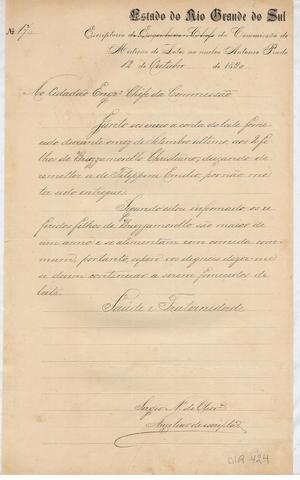 Estado do Rio Grande do Sul
Nº 173
Escriptorio do Engenheiro Chefe da Commissão de
Medição de Lotes no nucleo Antonio Prado
12 de Outubro de 1890
Ao Cidadão Engrº Chefe da Commissão
Junto vos envio a conta do leite forne
cido durante o mez de Setembro ultimo aos 2 fi
lhos de Christiano, deixando de
remetter a de Emilio por não me
ter sido entregue.
Segundo estou informado os re
feridos filhos de são maior de
um anno e se alimentam com comida com
mum, portanto, espero vos digneis dizer-me
se devem continuar a serem fornecidos de
leite.
Saude e Fraternidade
Sergio
Auxiliar de
DIR 424